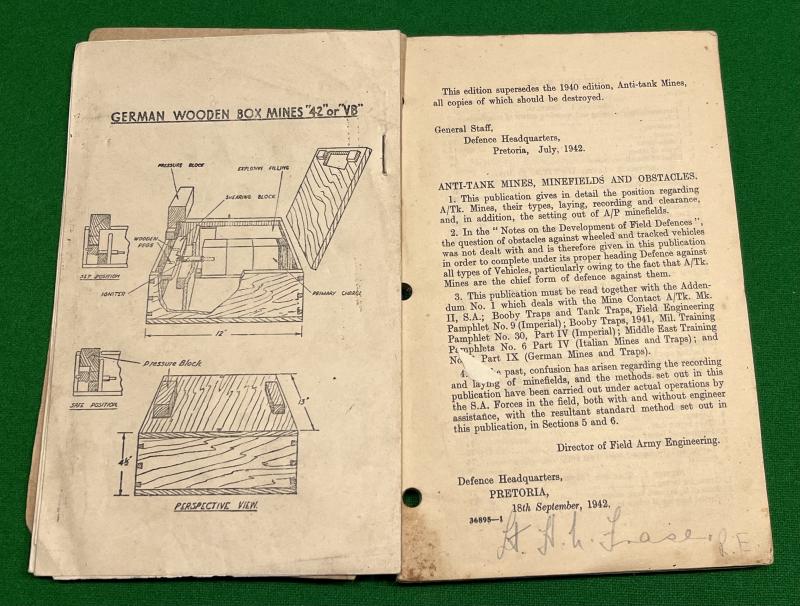 GERMAN WOODEN BOX MINES "42" or "VB"
PRESSURE BLOCK
EXPLOSIVE FILLING
SHEARING BLOCK
WOODEN
PEGS
SET POSITION
IGNITER
PRIMARY CHARGE
12"
Pressure Block
SAFE POSITION
13"
4½"
PERSPECTIVE VIEW.
This edition supersedes the 1940 edition, Anti-tank Mines,
all copies of which should be destroyed.
General Staff,
Defence Headquarters,
Pretoria, July, 1942.
ANTI-TANK MINES, MINEFIELDS AND OBSTACLES.
1. This publication gives in detail the position regarding
A/Tk. Mines, their types, laying, recording and clearance,
and, in addition, the setting out of A/P minefields.
2. In the "Notes on the Development of Field Defences",
the question of obstacles against wheeled and tracked vehicles
was not dealt with and is therefore given in this publication
in order to complete under its proper heading Defence against
all types of Vehicles, particularly owing to the fact that A/Tk.
Mines are the chief form of defence against them.
3. This publication must be read together with the Adden-
dum No. 1 which deals with the Mine Contact A/Tk. Mk.
II, S.A.; Booby Traps and Tank Traps, Field Engineering
Pamphlet No. 9 (Imperial); Booby Traps, 1941, Mil. Training
Pamphlet No. 30, Part IV (Imperial); Middle East Training
Pamphlets No. 6 Part IV (Italian Mines and Traps); and
No. Part IX (German Mines and Traps).
4. past, confusion has arisen regarding the recording
and laying of minefields, and the methods set out in this
publication have been carried out under actual operations by
the S.A. Forces in the field, both with and without engineer
assistance, with the resultant standard method set out in
this publication, in Sections 5 and 6.
Director of Field Army Engineering.
Defence Headquarters,
PRETORIA,
18th September, 1942.
36895—1
R.E.